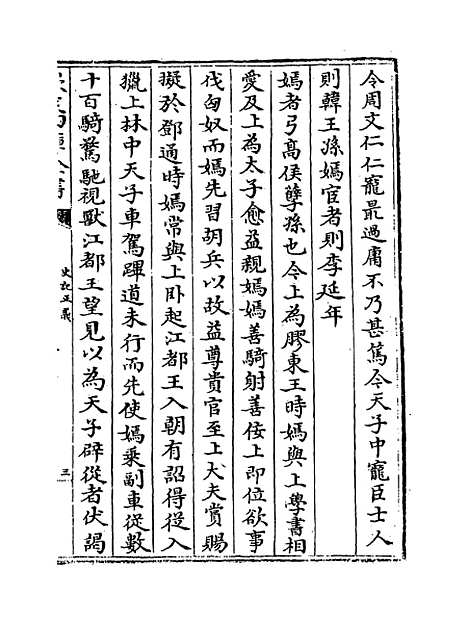 令周文仁仁寵最過庸不乃甚篤今天子中寵臣士人
則韓王孫嫣宦者則李延年
嫣者弓高侯孽孫也今上為膠東王時嫣與上學書相
愛及上為太子愈益親嫣嫣善騎射善佞上即位欲事
伐匈奴而嫣先習胡兵以故益尊貴官至上大夫賞賜
擬於鄧通時嫣常與上卧起江都王入朝有詔得從入
獵上林中天子車駕蹕道未行而先使嫣乘副車從數
十百騎騖馳視獸江都王望見以為天子辟從者伏謁
史記正義
三